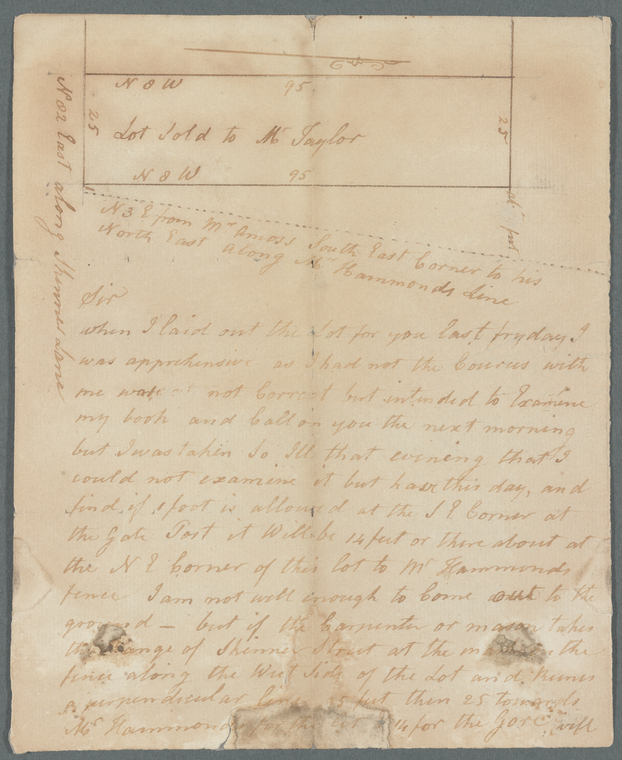 N 8 W 95
25
Lot Sold to Mr Taylor
25
N 8 W 95
N 82 East along Skinners Lane
N 3 E from Mr Amoss South East Corner to his
North East along Mr Hammonds Line
Sir
when I laid out the Lot for you Last fryday I
was apprehensive as I had not the Courses with
me was not Correct but intended to Examine
my book and Call on you the next morning
but I was taken So Ill that evening that I
could not examine it but have this day, and
find if 1 foot is allowed at the S E Corner at
the Gate Post it Will be 14 feet or there about at
the N E Corner of this lot to Mr Hammonds
fence I am not well enough to Come out to the
ground — but if the Carpenter or mason takes
the range of Skinner Street at the
fence along the West Side of the Lot and runs
a perpendicular line feet then 25 towards
Mr Hammonds 14 for the Gore will